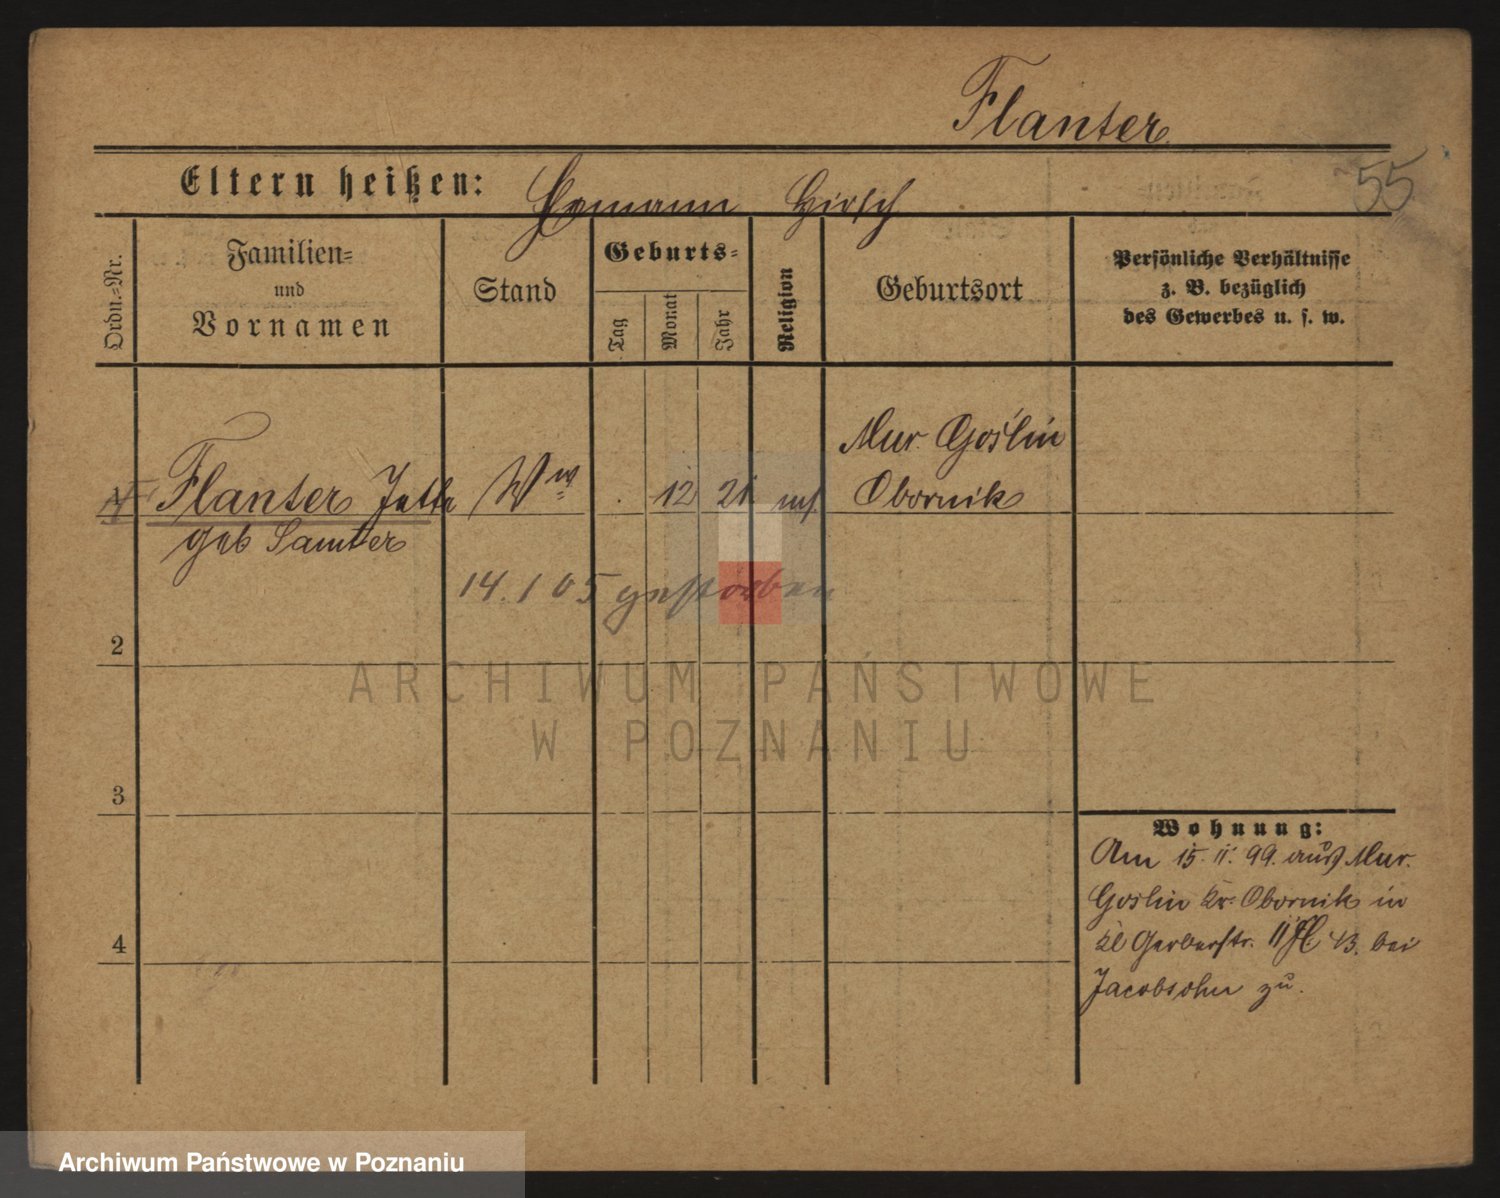 Flanter
55
Eltern heißen: Hirsch
Ordn.=Nr.
Familien=
und
Vornamen
Stand
Geburts=
Tag
Monat
Jahr
Religion
Geburtsort
Persönliche Verhältnisse
z. B. bezüglich
des Gewerbes u. s. w.
Mur. Goslin
Flanter Jette Ww. 12 21 mos. Obornik
geb Samter
14. 1 05 gestorben
2
ARCHIWUM PAŃSTWOWE
W POZNANIU
3
Wohnung:
Am 15. 11. 99. aus Mur.
Goslin Kr. Obornik in
4
Kl Gerberstr. 11 bei
Jacobsohn zu.
Archiwum Państwowe w Poznaniu